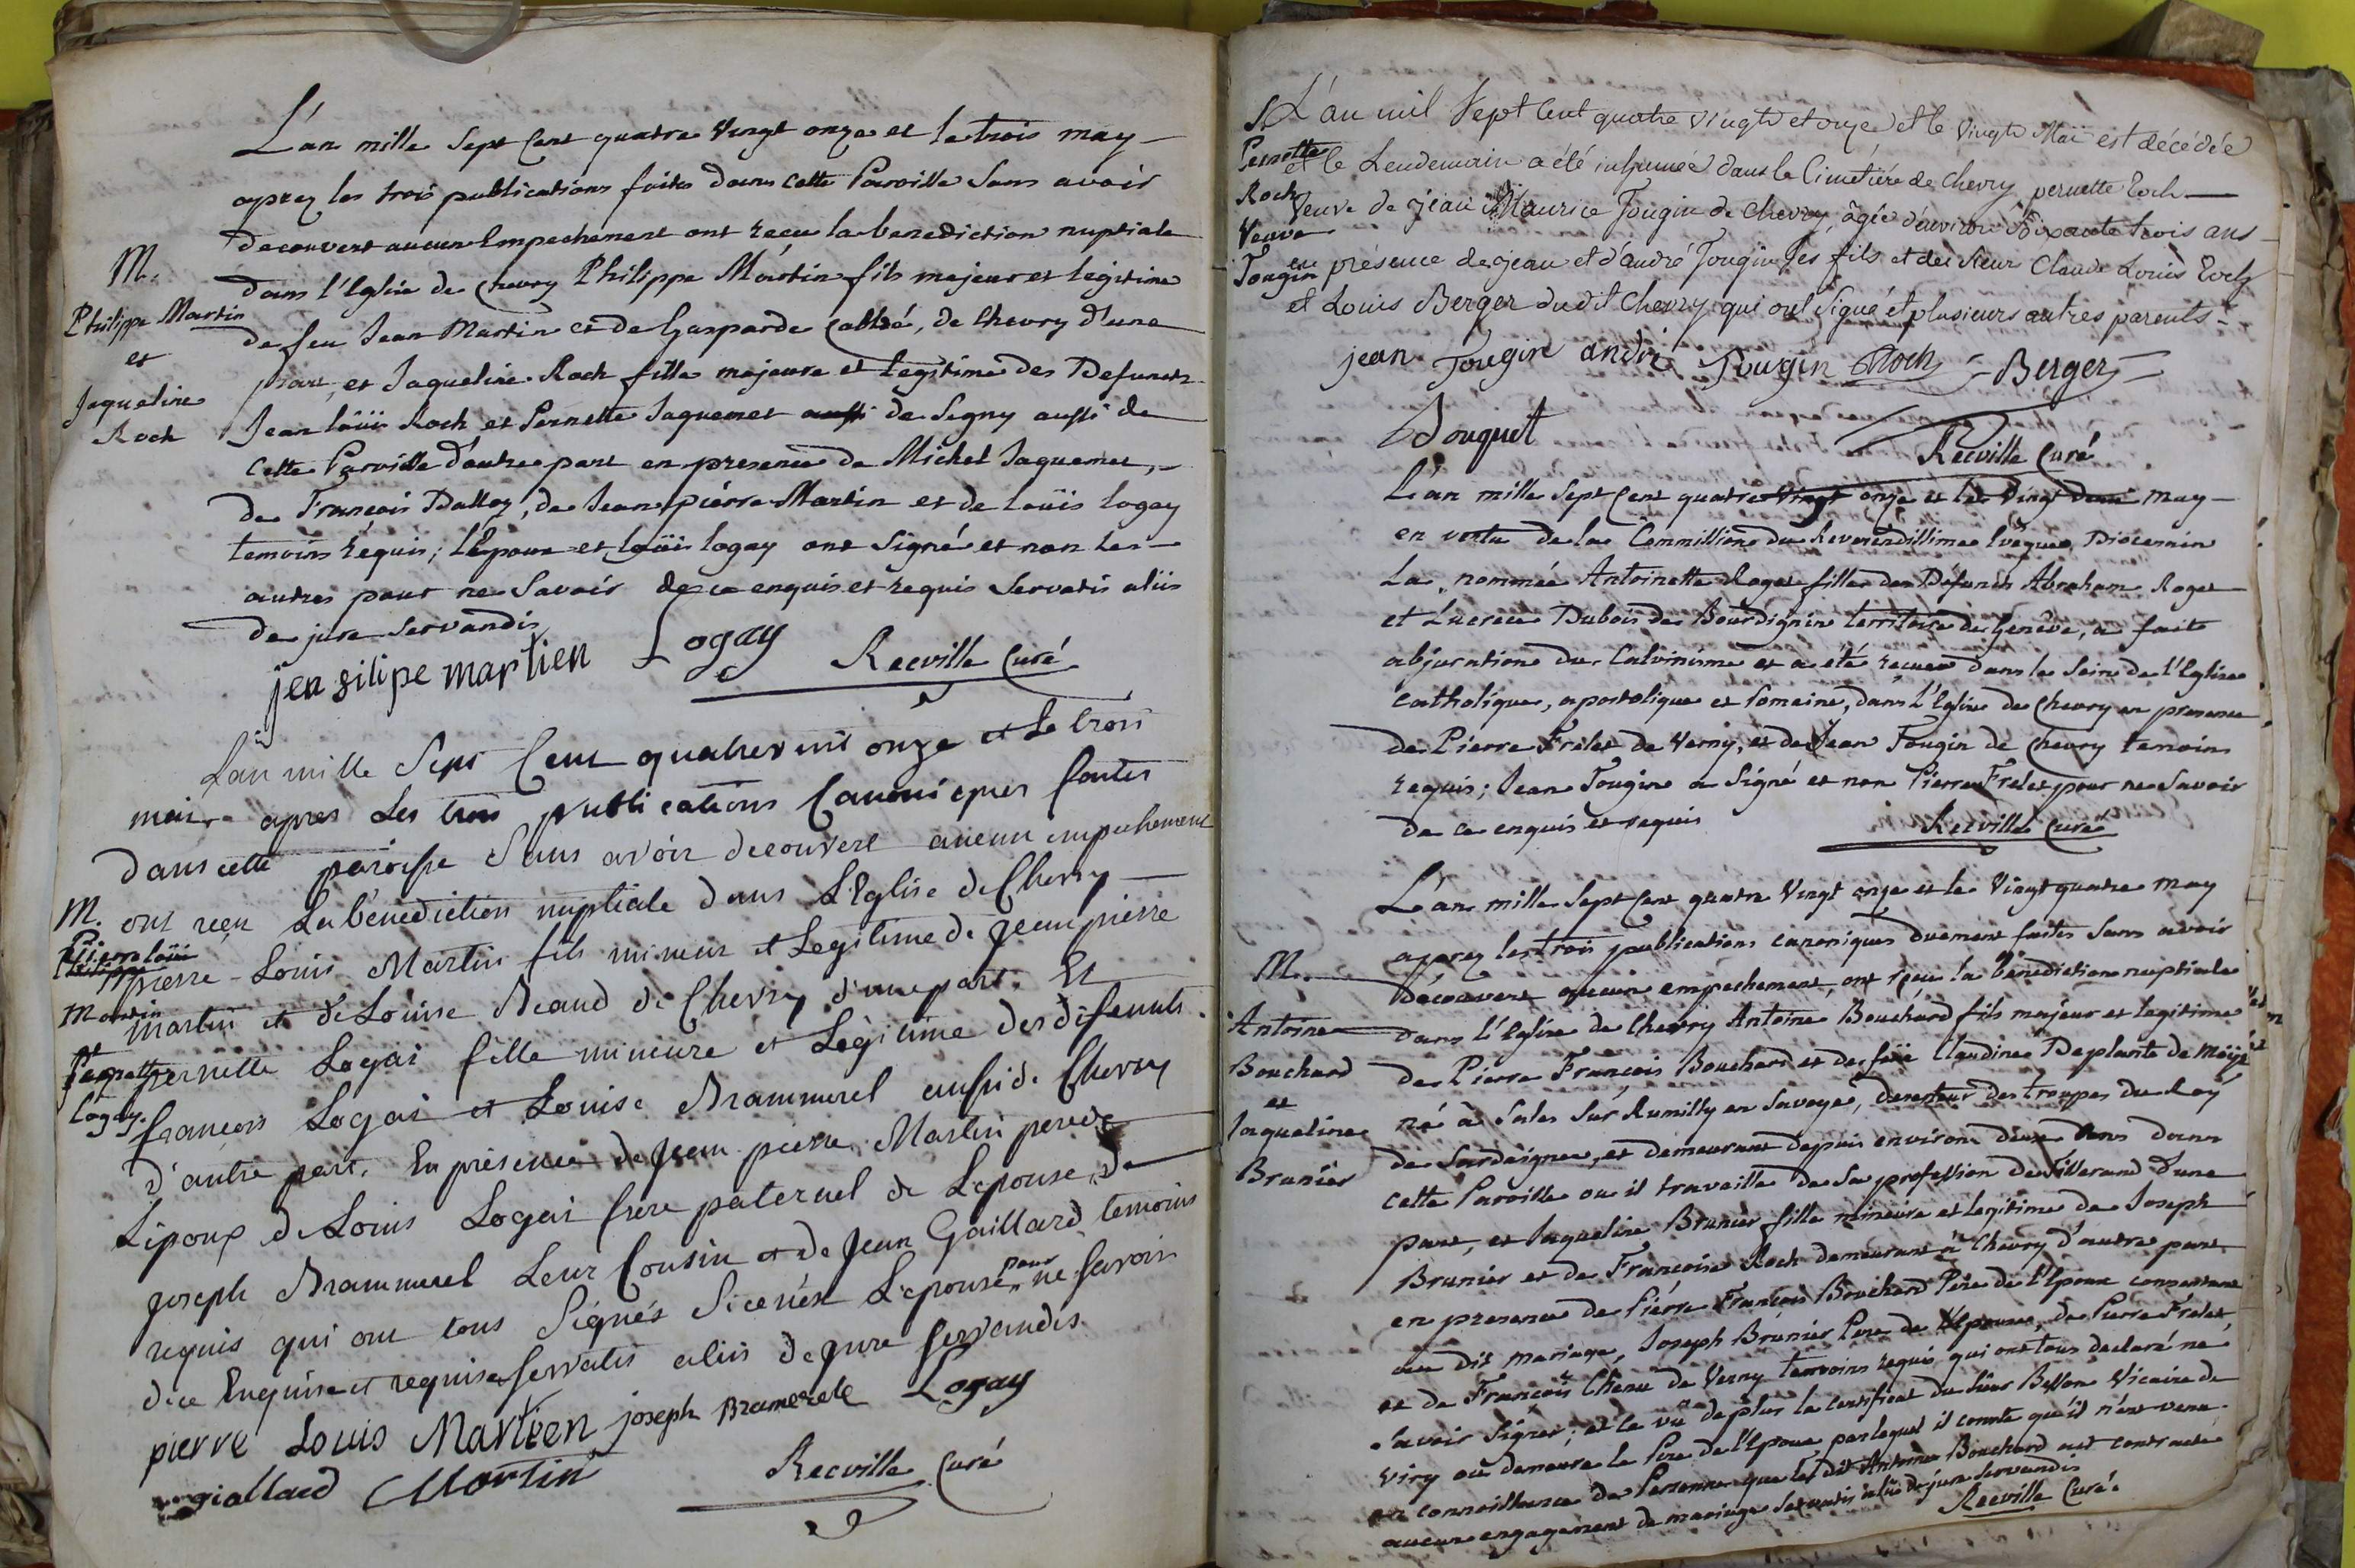 L'an mille Sept Cent quatre Vingt onze et le trois may
aprez les trois publications faites dans cette Paroisse Sans avoir
decouvert aucun Empechement ont reçu la benediction nuptiale
M.
dans l'Eglise de Chevry Philippe Martin fils majeur et legitime
Philippe Martin
de feu Jean Martin et de Gasparde de Chevry d'une
et
part, et Jaqueline Roch fille majeure et legitime des Defunts
Jaqueline
Roch
Jean loüis Roch et Pernette Jaquemet aussi de Segny aussi de
Cette Paroisse d'autre part en presence de Michel Jaquemet,
de François Dalloz, de Jean pierre Martin et de loüis logay
temoins requis; l'Epoux et loüis logay ont Signé et non les
autres pour ne Savoir de ce enquis et requis Servatis aliis
de jure Servandis
jen filipe martien Logay Recville Curé
L'an mille Sept Cent quatrevint onze et Le trois
mai apres Les trois publications Canoniques faites
dans cette paroisse Sans avoir decouvert aucun empechement
M. ont reçu La bénédiction nuptiale dans L'Eglise de Chevry
Pierre loüis
pierre-Louis Martin fils mineur et Legitime de Jean pierre
Martin
martin et de Louise Beaud de Chevry d'une part. Et
et
Pernette
pernette Logai fille mineure et Légitime des défunts
logay.
francois Logai et Louise Brammerel aussi de Chevry
d'autre part. En présence de Jean pierre Martin pere de
L'époux de Louis Logai frere paternel de L'epouse, de
joseph Brammerel Leur Cousin et de Jean Gaillard temoins
requis qui ont tous Signés Si ce n'est L'epouse pour ne Savoir
de ce Enquise et requise Servatis aliis de jure Servandis.
pierre Louis Martien joseph Bramerele Logay
giallard Martin Recville Curé
S. L'an mil Sept Cent quatre vingts et onze et le vingts Mai est décédée
Pernette
et le Lendemain a été inhumée dans le Cimetiére de Chevry pernette Roch
Roch
Veuve de jean Maurice Tougin de Chevry, âgée d'environ Soixante trois ans
Veuve
Tougin
en présence de jean et d'andré Tougin Ses fils et des Sieurs Claude Louis Roch
et Louis Berger du dit Chevry qui ont Signé et plusieurs autres parents
jean Tougin andré Tougin Roch Berger
Douquet
Recville Curé
L'an mille Sept Cent quatre Vingt onze et le Vingt deux may
en vertu de la Commission du Reverendissime Evêque Diocesain
La nommée Antoinette Roget fille des Defunts Abraham Roget
et Lucrece Dubois de Bourdignin territoire de Genève, a fait
abjuration du Calvinisme et a été reçue dans le Sein de l'Eglise
Catholique, apostolique et romaine, dans l'Eglise de Chevry en presence
de Pierre Frelet de Verny, et de Jean Tougin de Chevry temoins
requis; Jean Tougin a Signé et non Pierre Frelet pour ne Savoir
de ce enquis et requis Recville Curé
L'an mille Sept Cent quatre Vingt onze et le Vingt quatre may
aprez les trois publications canoniques duement faites Sans avoir
M.
découvert aucun empechement, ont reçu la bénédiction nuptiale
Antoine
dans l'Eglise de Chevry Antoine Bouchard fils majeur et legitime
Bouchard
de Pierre François Bouchard et de feüe Claudine Deplante de
et
né à Sales Sur Rumilly en Savoye, deserteur des troupes du Roy
Jaqueline
de Sardaigne, et demeurant depuis environ deux Ans dans
Brunier
cette Paroisse ou il travaille de Sa profession de Tisserand d'une
part, et Jaqueline Brunier fille mineure et legitime de Joseph
Brunier et de Françoise Roch demeurant à Chevry d'autre part
en presence de Pierre François Bouchard Père de l'Epoux consentant
au dit mariage, Joseph Brunier Pere de l'Epouse, de Pierre Frelet,
et de François Chenu de Verny temoins requis qui ont tous declaré ne
Savoir Signer; et le vû de plus le certificat du Sieur Besson Vicaire de
Viry où demeure le Pere de l'Epoux par lequel il conste qu'il n'est venu
en connoissance de Personne que le dit Antoine Bouchard ait contracté
aucun engagement de mariage Servatis aliis de jure Servandis
Recville Curé.